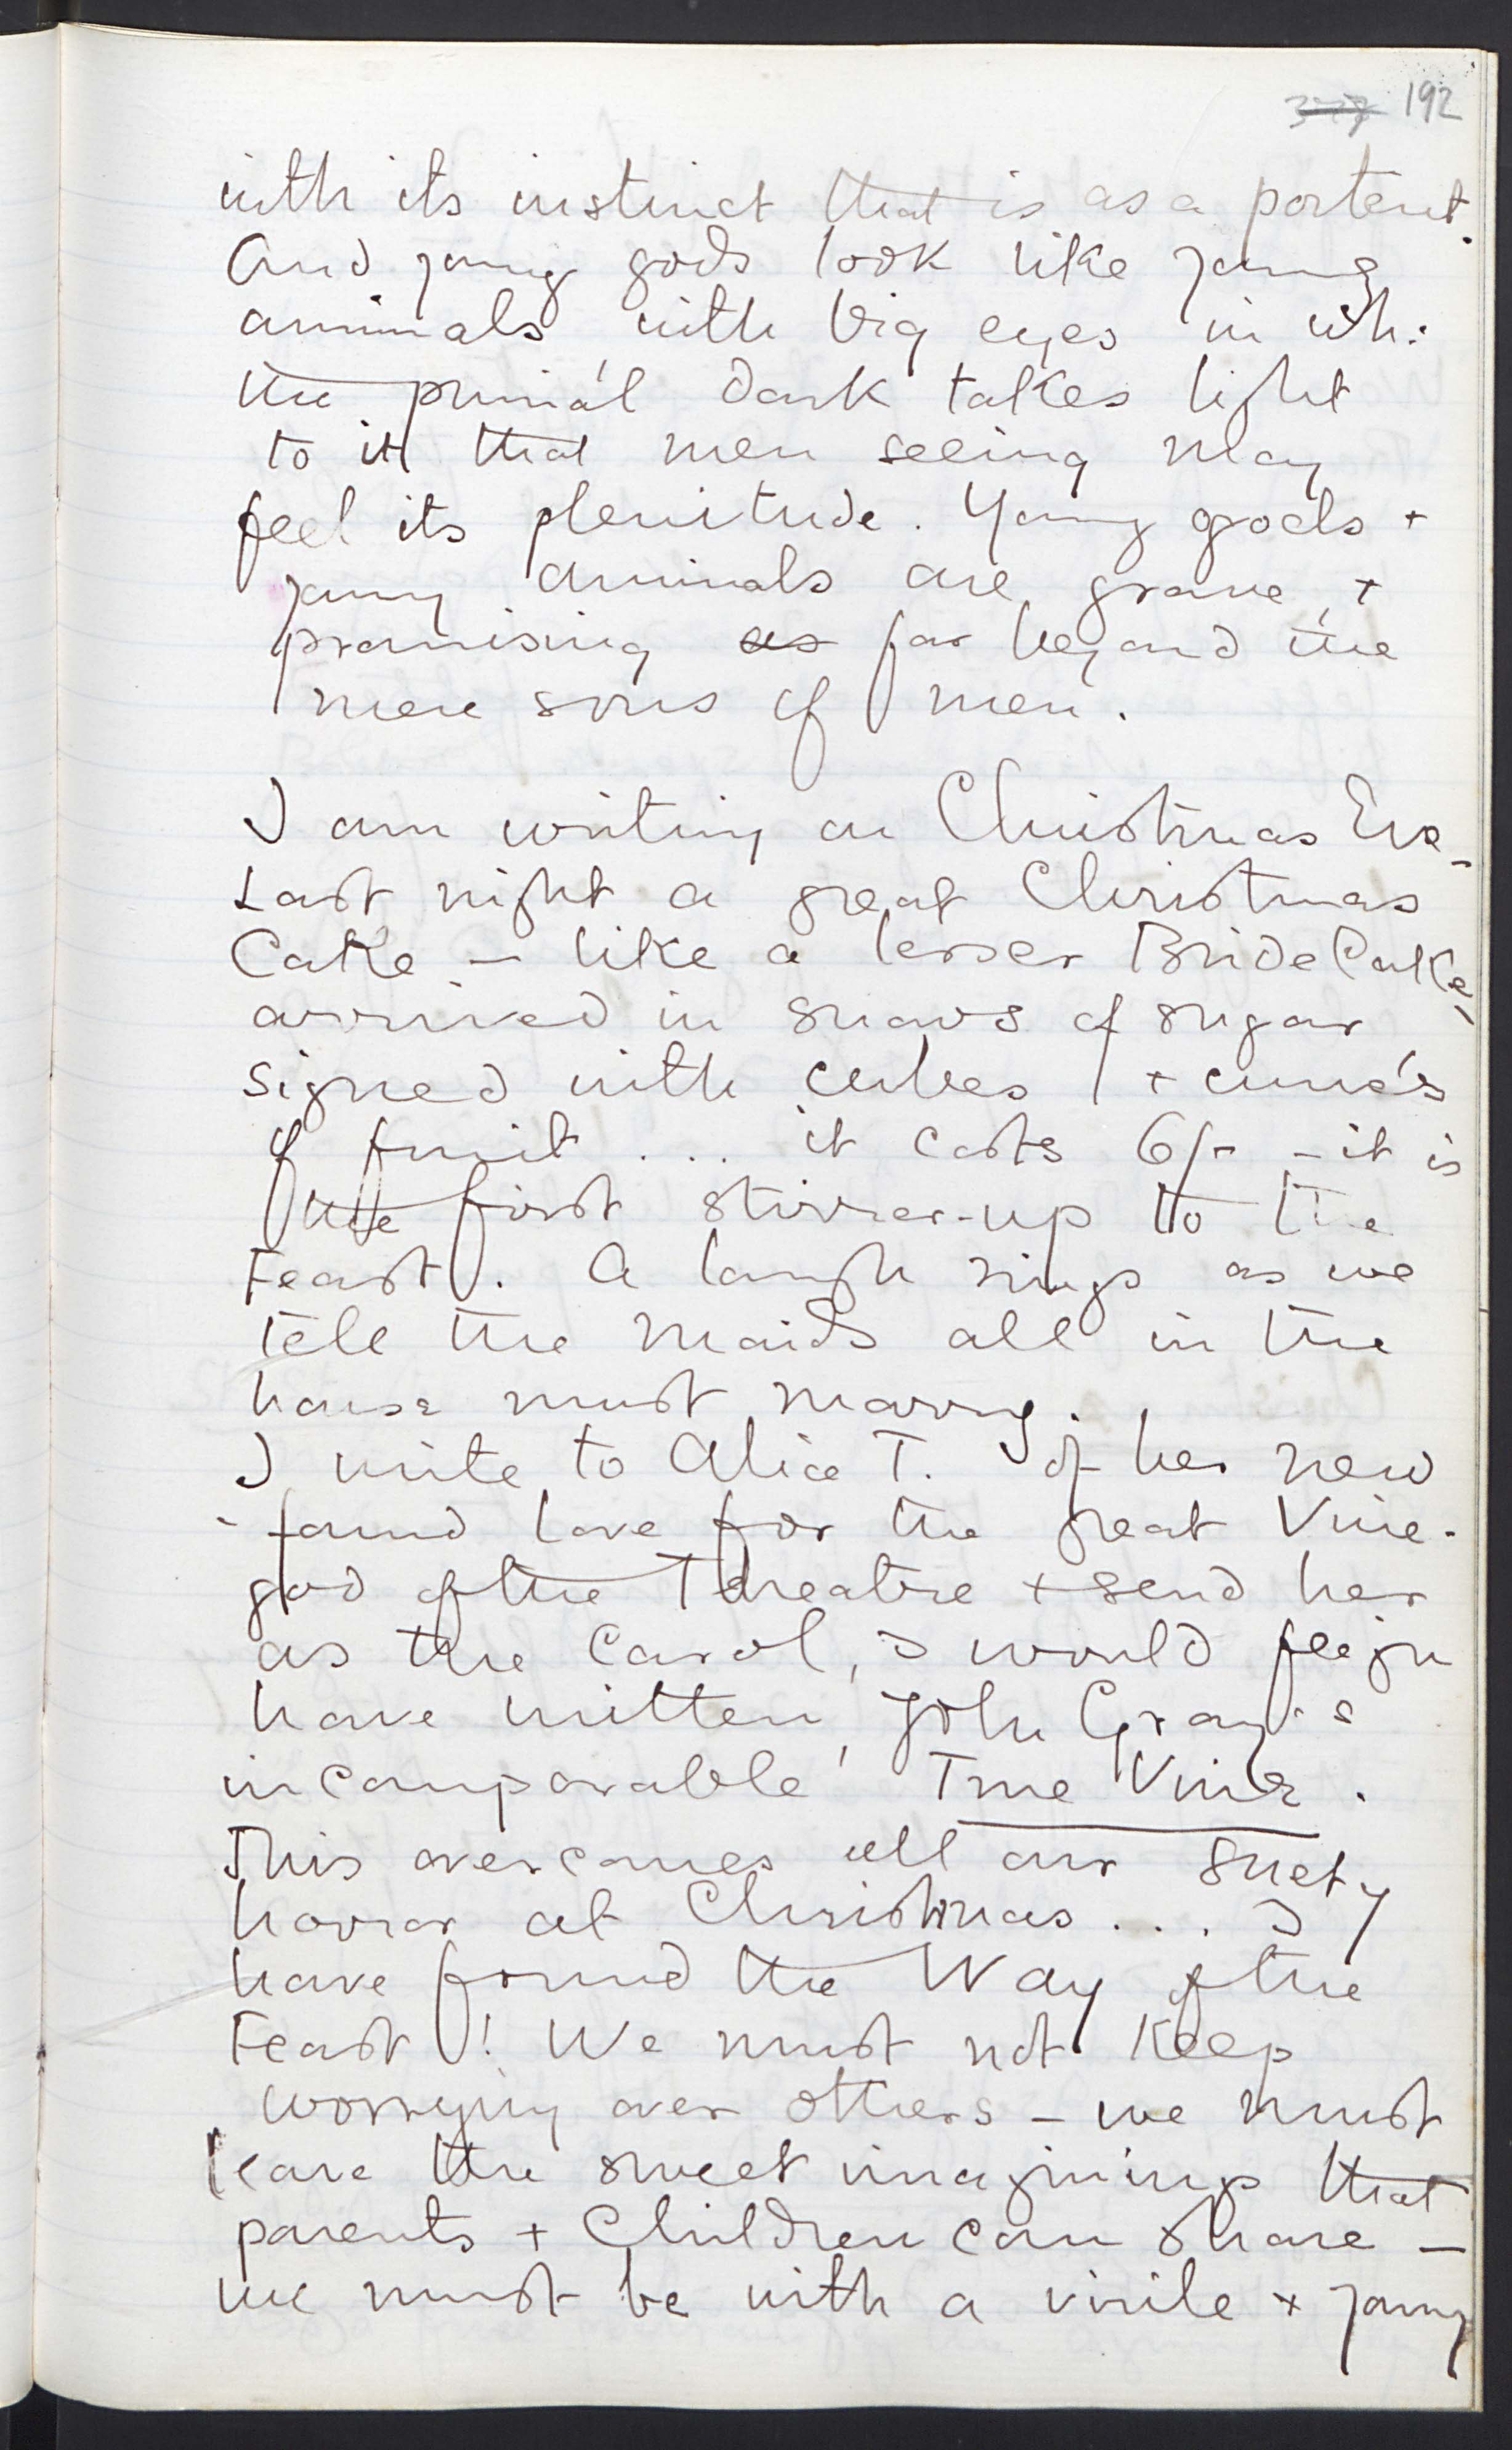 192
with its instinct that is as a portent.
And young gods look like young
animals with big eyes in wh:
the primal dark takes light
to it that men seeing may
feel its plenitude. Young gods +
young animals are grave, +
promising as far beyond the
mere sons of men.
I am writing on Christmas Eve –
Last night a great Christmas
Cake – like a lesser Bride Cake,
arrived in snows of sugar
signed with cubes + curves
of fruit ... it costs 6/- – it is
the first stirrer-up to the
Feast. A laugh rings as we
tell the maids all in the
house must marry.
I write to Alice T. of her new
-found love for the great Vine-
god of the Theatre + send her
as the Carol, I would feign
have written, John Gray's
incomparable True Vine.
This overcomes all our suety
horror at Christmas ... I
have found the Way of the
Feast! We must not keep
worrying over others – we must
leave the sweet imaginings that
parents + Children can share –
we must be with a virile + young